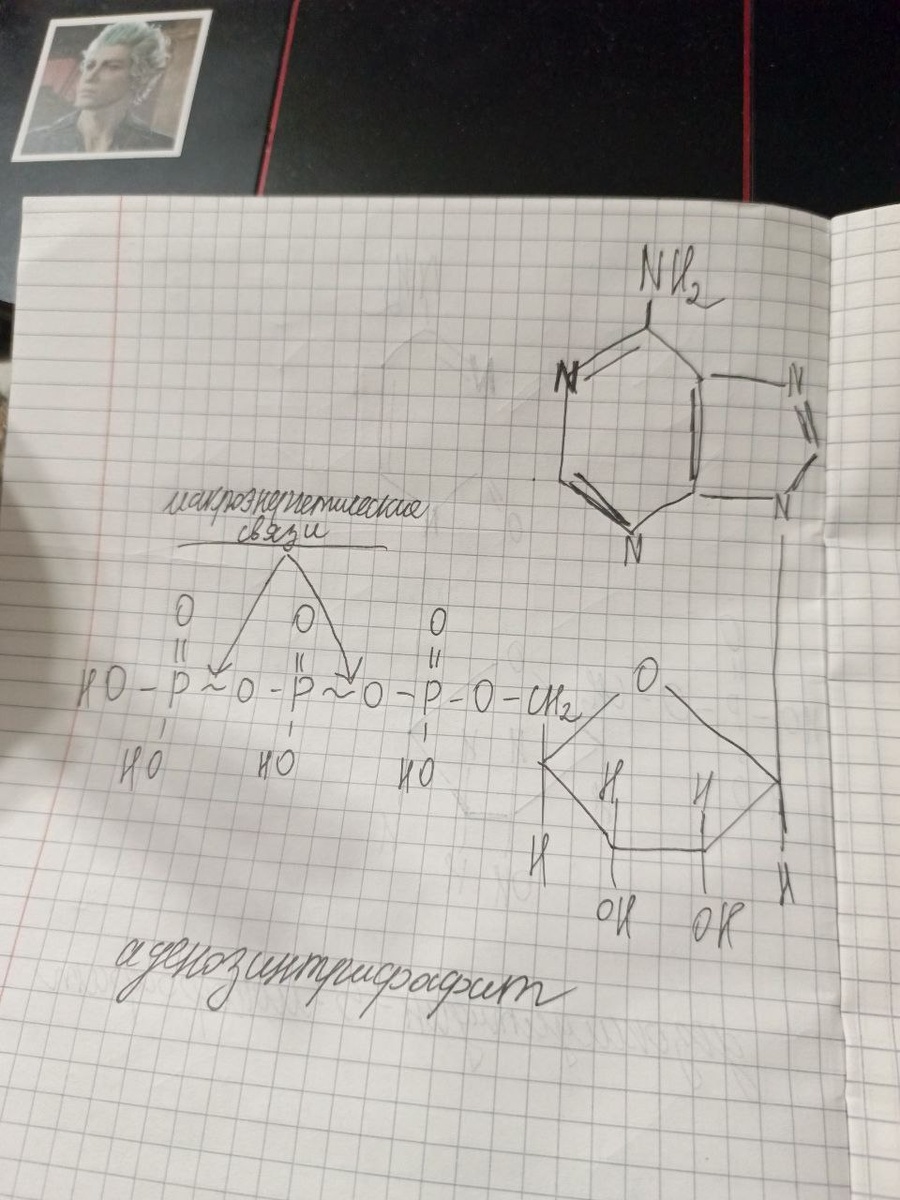 NH₂
N
N
N
N
макроэнергетические
связи
O O O
|| || ||
HO – P ~ O – P ~ O – P – O – CH₂
O
HO HO HO
H H
H H
OH OH
аденозинтрифосфат